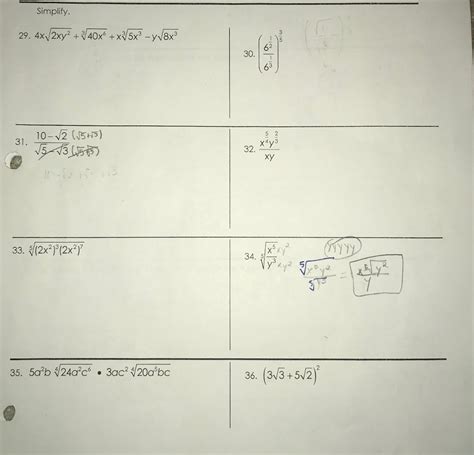 Simplify.
29. 4x√2xy² + ∛40x⁶ + x∛5x³ − y√8x³
30. (6^(1/2) / 6^(1/3))^(3/5)
31. (10 − √2 (√5+√3)) / (√5 − √3 (√5+√3))
32. x^(5/4) y^(2/3) / xy
33. ⁵√(2x²)³(2x²)⁷
34. ⁵√(x⁵ xy² / y³ xy²) yyyyy ⁵√x⁵y² / ⁵√y⁵ = x ⁵√y² / y
35. 5a²b ⁴√24a²c⁶ • 3ac² ⁴√20a⁵bc
36. (3√3 + 5√2)²